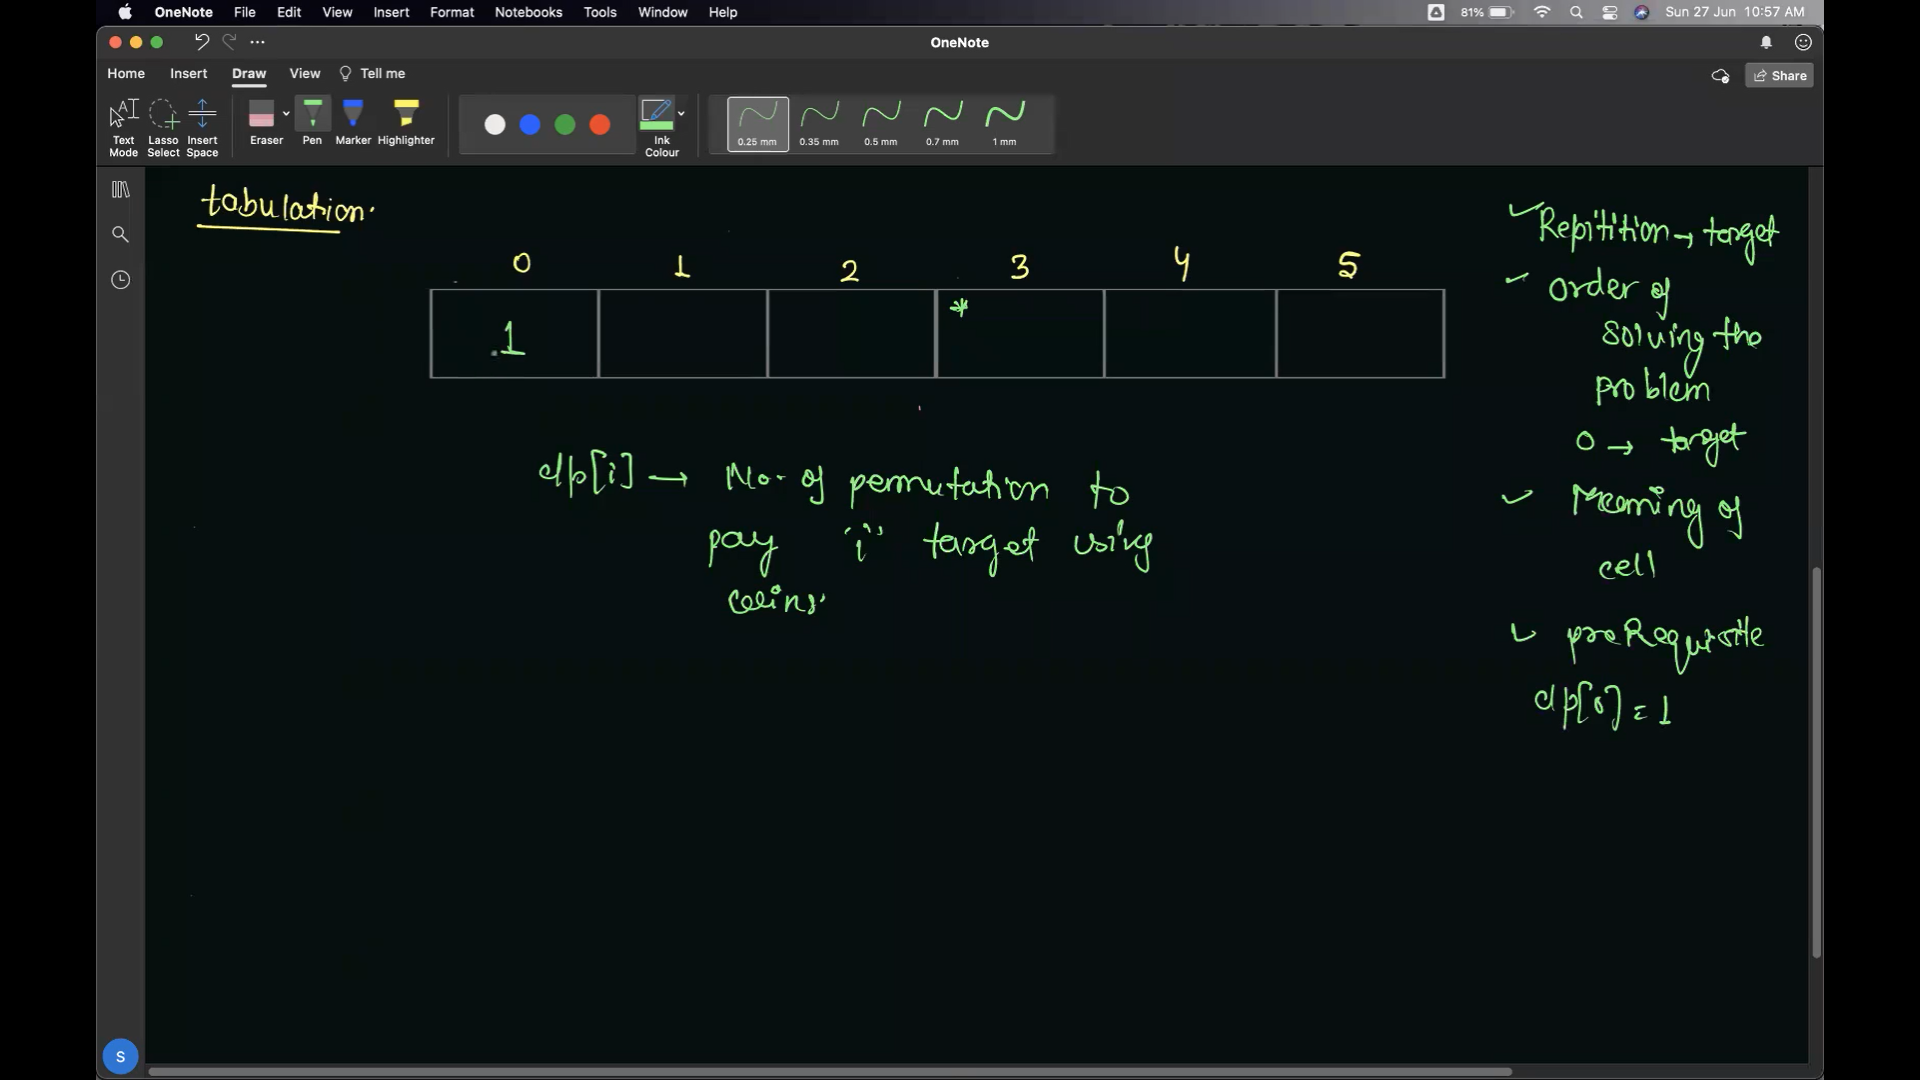 OneNote File Edit View Insert Format Notebooks Tools Window Help 81% Sun 27 Jun 10:57 AM
OneNote
Home Insert Draw View Tell me Share
Text Mode Lasso Select Insert Space Eraser Pen Marker Highlighter Ink Colour 0.25 mm 0.35 mm 0.5 mm 0.7 mm 1 mm
tabulation.
0 1 2 3 4 5
1 *
dp[i] → No. of permutation to
pay "i" target using
coins.
✓ Repitition → target
✓ order of
solving the
problem
0 → target
✓ Meaming of
cell
✓ preRequisite
dp[0] = 1
S